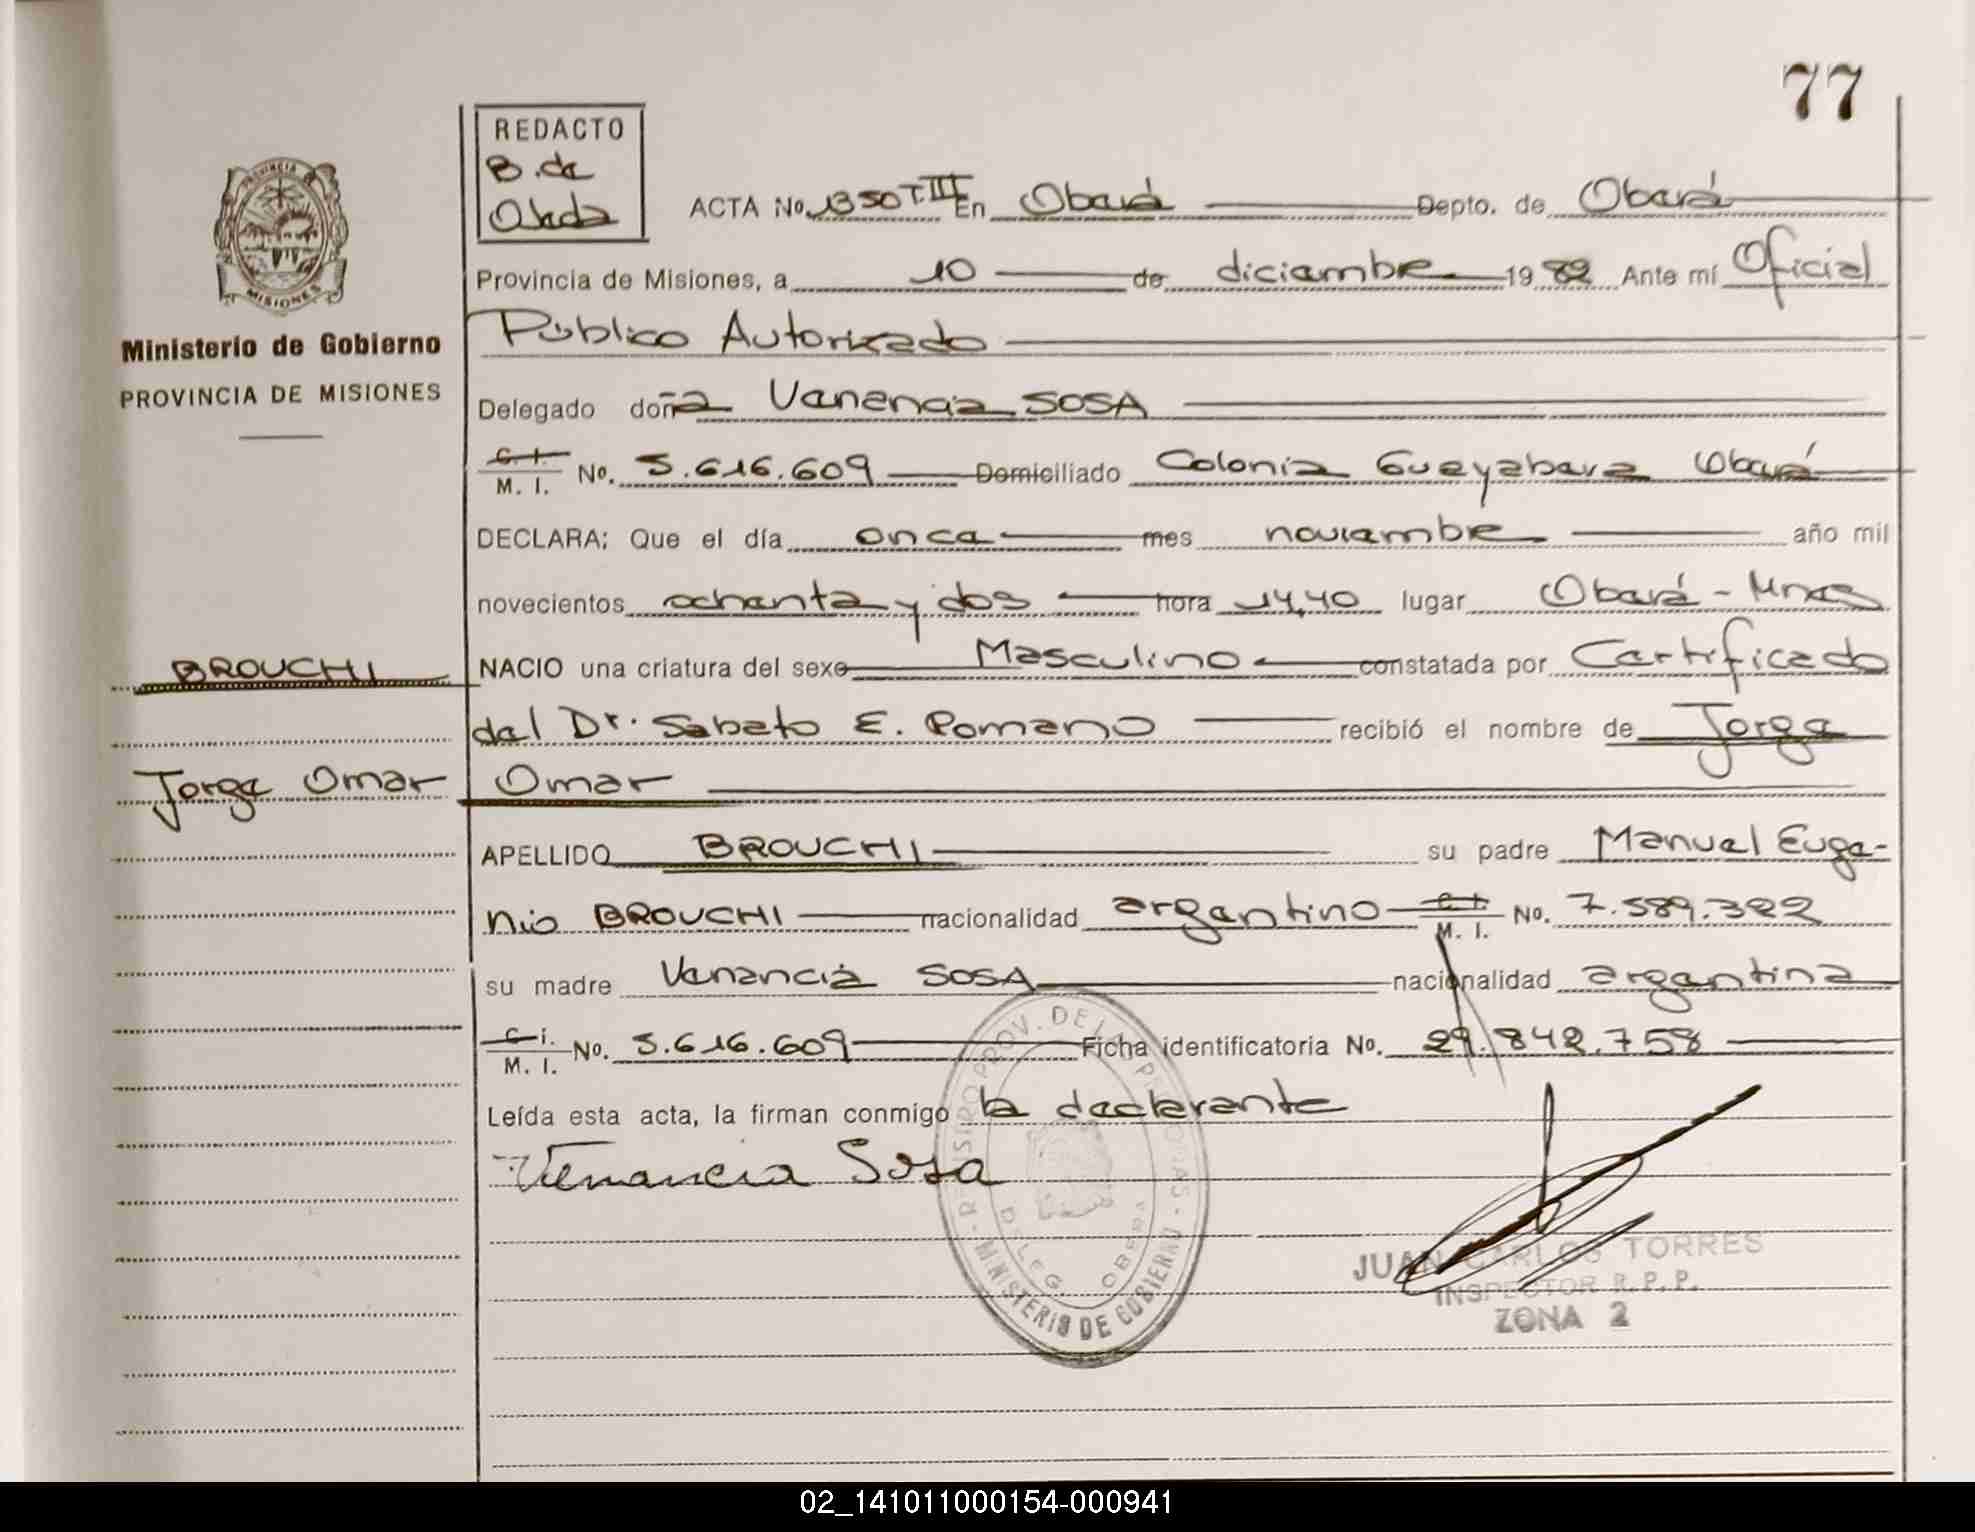 77
REDACTO
B. de
Ojeda
ACTA No. 1350 T. III En Oberá Depto. de Oberá
PROVINCIA
MISIONES
Provincia de Misiones, a 10 de diciembre 1982 Ante mí Oficial
Público Autorizado
Ministerio de Gobierno
PROVINCIA DE MISIONES
Delegado doña Venencia SOSA
C. I.
M. I. No. 5.616.609 Domiciliado Colonia Gueyabera Oberá
DECLARA: Que el día once mes noviembre año mil
novecientos ochenta y dos hora 14,40 lugar Oberá - Mnes
BROUCHI
NACIO una criatura del sexo Masculino constatada por Certificado
del Dr. Sabato E. Romano recibió el nombre de Jorge
Jorge Omar
Omar
APELLIDO BROUCHI su padre Manuel Euge-
nio BROUCHI nacionalidad argentino C. I. M. I. No. 7.589.322
su madre Venancia SOSA nacionalidad argentina
C. I.
M. I. No. 5.616.609 Ficha identificatoria No. 29.842.758
Leída esta acta, la firman conmigo la declarante
Venancia Sosa
PROV. DE LAS PERSONAS
DELEG. OBERA
MINISTERIO DE GOBIERNO
JUAN CARLOS TORRES
INSPECTOR R.P.P.
ZONA 2
02_141011000154-000941